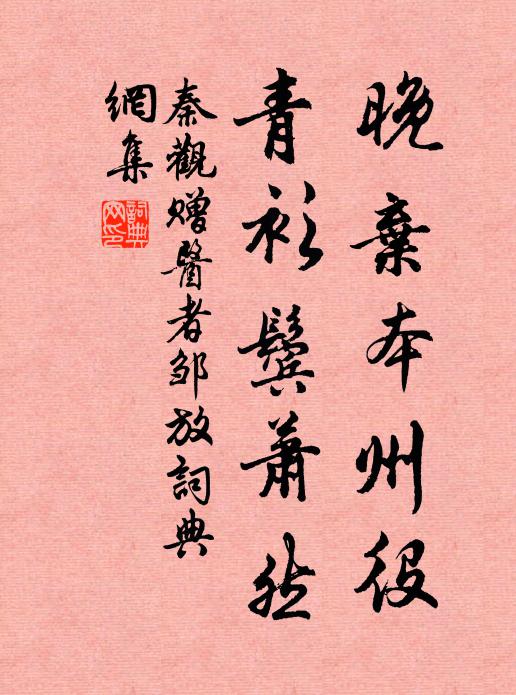 晚棄本州役
青衫鬢蕭然
秦觀贈醫者鄒放詞典
網集
詞典網印